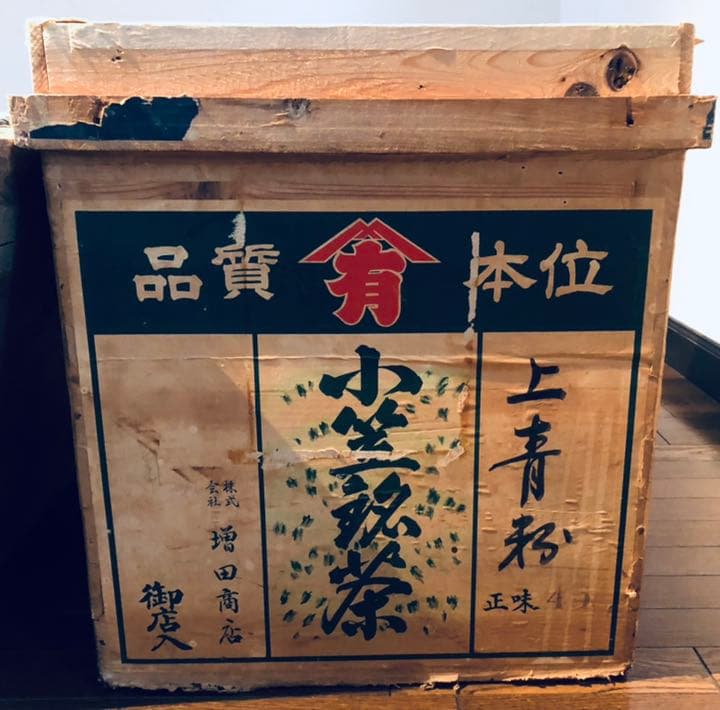 品質 有 本位
上青粉
正味 4
小笠銘茶
株式会社 増田商店
御店入